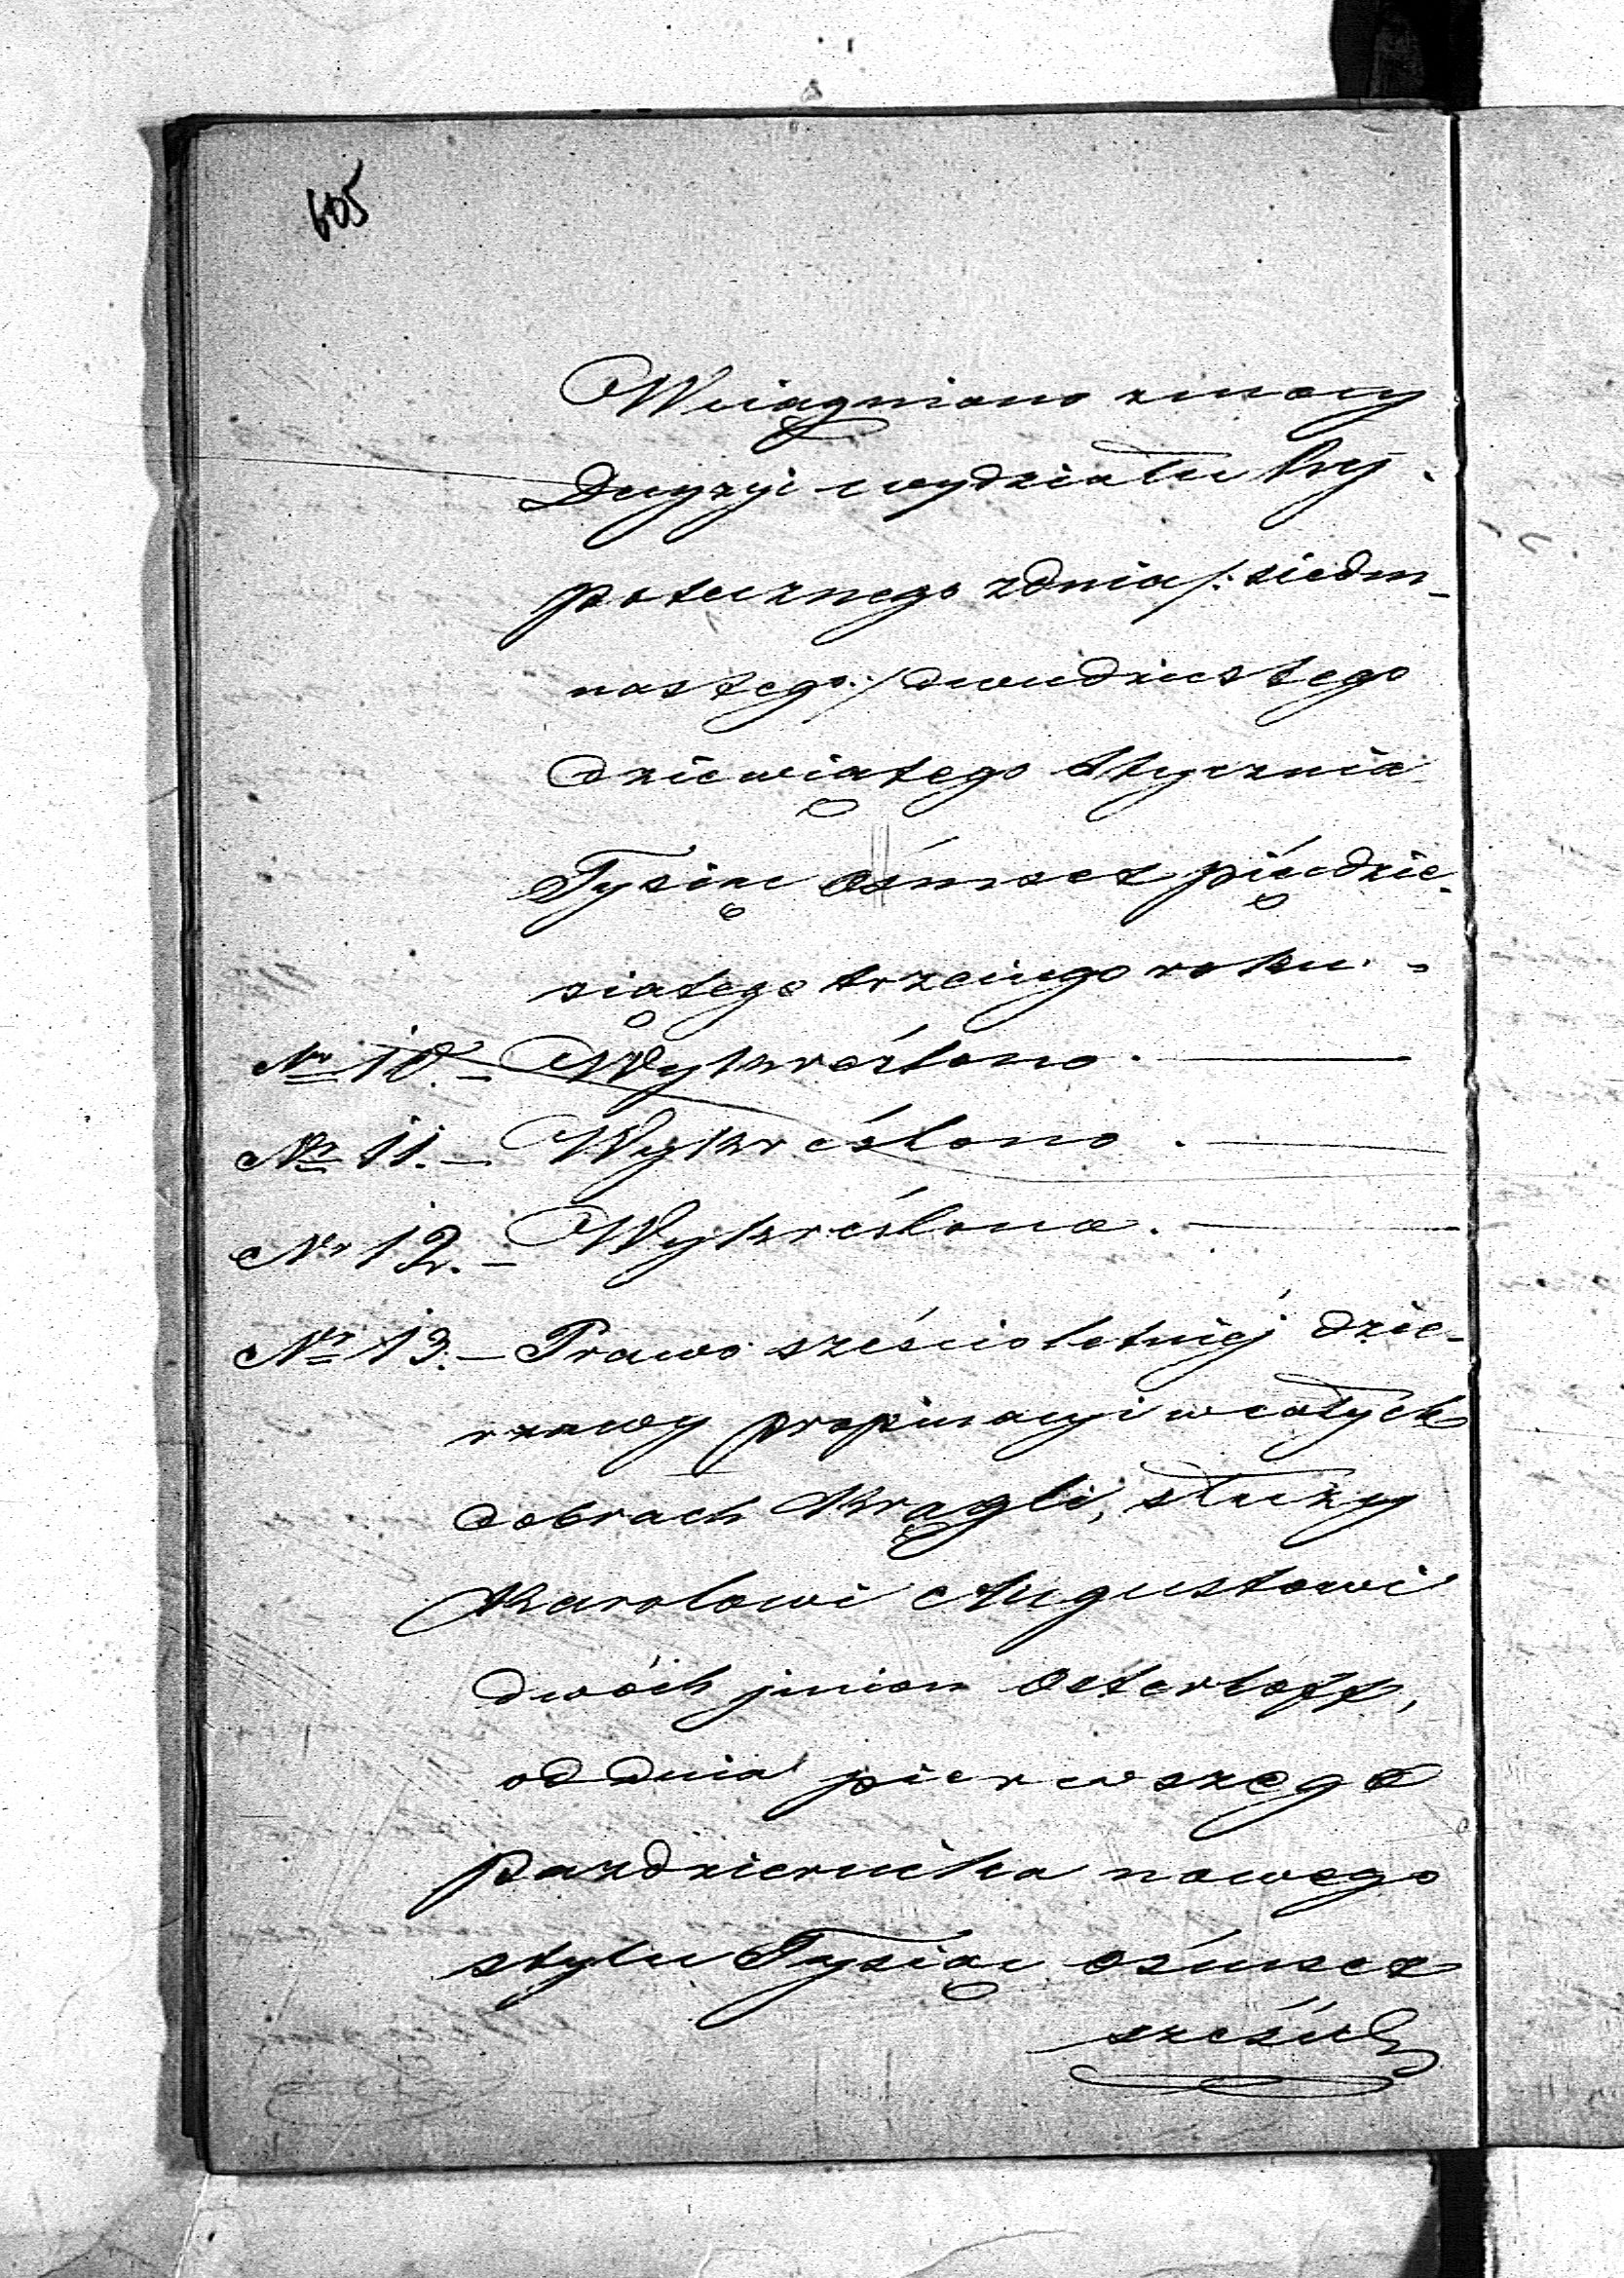 605
Wciągniono zmocy
Decyzyi wydziału hy-
potecznego zdnia /: siedm-
nastego :/ dwudziestego
dziewiątego Stycznia
Tysiąc ośmset pięćdzie-
siątego trzeciego roku. -
Nr 10. - Wykreślono. -
Nr 11. - Wykreślono. -
Nr 12. - Wykreślono. -
Nr 13. - Prawo sześcioletniéj dzie-
rzawy propinacyi wcałych
dobrach Krągli, służy
Karolowi Augustowi
dwóch imion Osterloff,
oddnia pierwszego
pazdziernika nowego
stylu Tysiąc ośmset
sześćdz